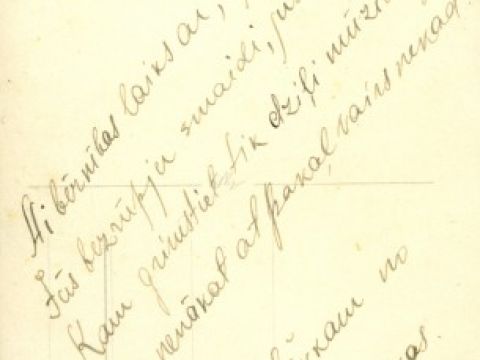 Ai bērnības laiks ai,
Jūs bezrūpju smaidi, jūs
Kam grimstiet tik dziļi mūži
nenākat atpakaļ, vairs nekad
kam no